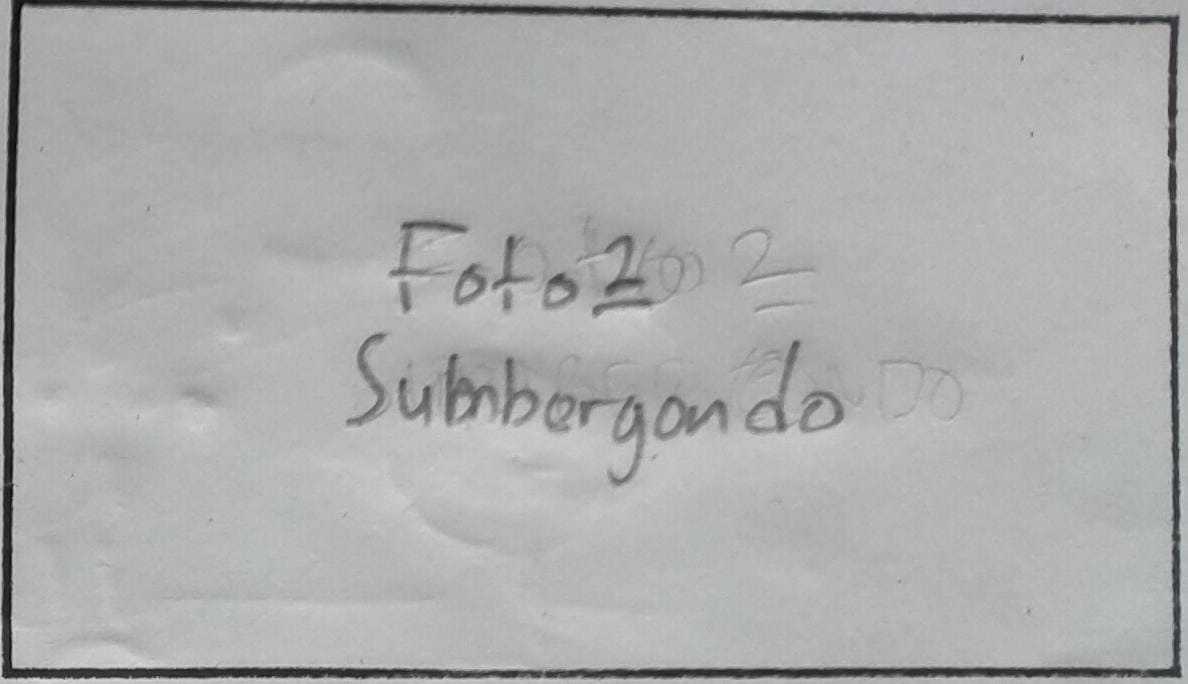 Foto 2
Sumbergondo